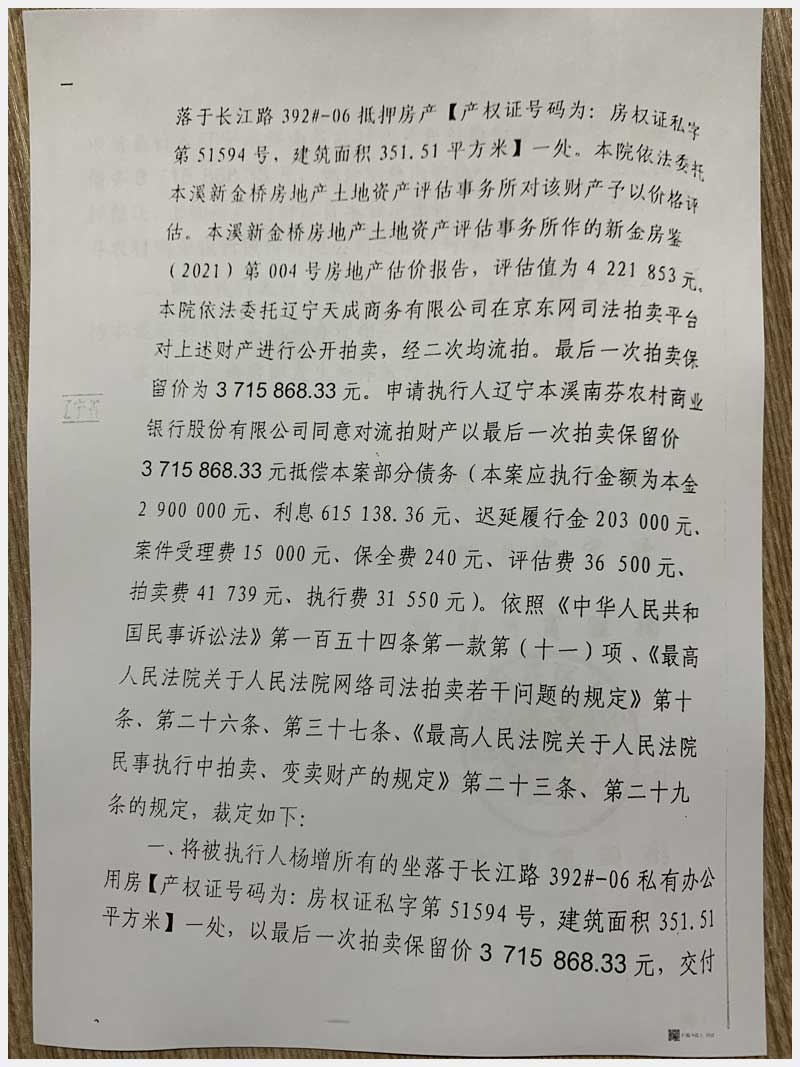 落于长江路 392#-06 抵押房产【产权证号码为：房权证私字
第 51594 号，建筑面积 351.51 平方米】一处。本院依法委托
本溪新金桥房地产土地资产评估事务所对该财产予以价格评
估。本溪新金桥房地产土地资产评估事务所作的新金房鉴
（2021）第 004 号房地产估价报告，评估值为 4 221 853 元。
本院依法委托辽宁天成商务有限公司在京东网司法拍卖平台
对上述财产进行公开拍卖，经二次均流拍。最后一次拍卖保
留价为 3 715 868.33 元。申请执行人辽宁本溪南芬农村商业
银行股份有限公司同意对流拍财产以最后一次拍卖保留价
3 715 868.33 元抵偿本案部分债务（本案应执行金额为本金
2 900 000 元、利息 615 138.36 元、迟延履行金 203 000 元、
案件受理费 15 000 元、保全费 240 元、评估费 36 500 元、
拍卖费 41 739 元、执行费 31 550 元）。依照《中华人民共和
国民事诉讼法》第一百五十四条第一款第（十一）项、《最高
人民法院关于人民法院网络司法拍卖若干问题的规定》第十
条、第二十六条、第三十七条、《最高人民法院关于人民法院
民事执行中拍卖、变卖财产的规定》第二十三条、第二十九
条的规定，裁定如下：
一、将被执行人杨增所有的坐落于长江路 392#-06 私有办公
用房【产权证号码为：房权证私字第 51594 号，建筑面积 351.51
平方米】一处，以最后一次拍卖保留价 3 715 868.33 元，交付